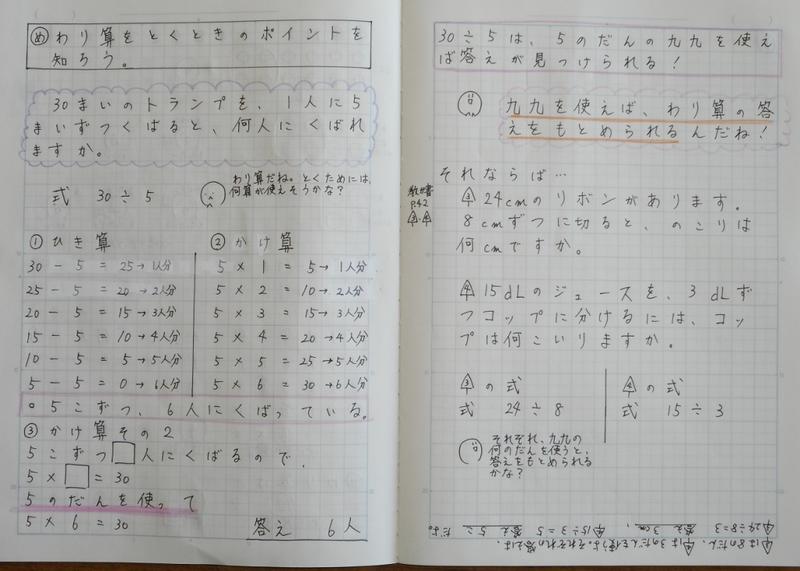 め わり算をとくときのポイントを
知ろう。
30まいのトランプを、1人に5
まいずつくばると、何人にくばれ
ますか。
式 30÷5
わり算だね。とくためには、
何算が使えそうかな?
① ひき算
30 − 5 = 25→1人分
25 − 5 = 20→2人分
20 − 5 = 15→3人分
15 − 5 = 10→4人分
10 − 5 = 5→5人分
5 − 5 = 0→6人分
② かけ算
5 × 1 = 5→1人分
5 × 2 = 10→2人分
5 × 3 = 15→3人分
5 × 4 = 20→4人分
5 × 5 = 25→5人分
5 × 6 = 30→6人分
○5こずつ、6人にくばっている。
③ かけ算その2
5こずつ□人にくばるので、
5 × □ = 30
5のだんを使って
5 × 6 = 30
答え 6人
30÷5は、5のだんの九九を使え
ば答えが見つけられる!
九九を使えば、わり算の答
えをもとめられるんだね!
それならば…
教科書
P.42
③・④
③ 24cmのリボンがあります。
8cmずつに切ると、のこりは
何cmですか。
④ 15dLのジュースを、3dLず
つコップに分けるには、コッ
プは何こいりますか。
③の式
式 24÷8
④の式
式 15÷3
それぞれ、九九の
何のだんを使うと、
答えをもとめられる
かな?
③は8のだん、④は3のだんを使うよ。それぞれの答えは、
③24÷8=3 答え 3cm、④15÷3=5 答え 5こ だよ。